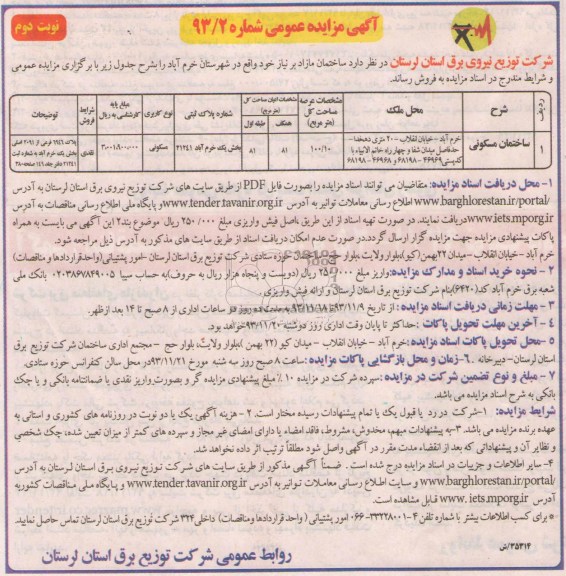 آگهی مزایده عمومی شماره ۹۳/۲
نوبت دوم
شرکت توزیع نیروی برق استان لرستان در نظر دارد ساختمان مازاد بر نیاز خود واقع در شهرستان خرم آباد را بشرح جدول زیر با برگزاری مزایده عمومی
و شرایط مندرج در اسناد مزایده به فروش رساند.
ردیف | شرح | محل ملک | مشخصات عرصه مساحت کل (متر مربع) | مشخصات اعیان مساحت کل (متر مربع) همکف طبقه اول | شماره پلاک ثبتی | نوع کاربری | مبلغ پایه کارشناسی به ریال | شرایط فروش | توضیحات
۱ | ساختمان مسکونی | خرم آباد - خیابان انقلاب - ۲۰ متری دهخدا - حدفاصل میدان شفا و چهار راه خاتم الانبیاء با کدپستی ۴۶۹۶۹-۶۸۱۹۸ و ۴۶۹۶۸-۶۸۱۹۸ | ۱۰۰/۱۰ | ۸۱ | ۸۱ | بخش یک خرم آباد ۲۱۲۴۱ | مسکونی | نقدی | پلاک ۱۹۴۱ فرعی از ۲۰۹۱ اصلی بخش یک خرم آباد به شماره ثبت ۲۱۲۴۱ دفتر جلد ۱۴۱ صفحه ۲۸۰
۱- محل دریافت اسناد مزایده: متقاضیان می توانند اسناد مزایده را بصورت فایل PDF از طریق سایت های شرکت توزیع نیروی برق استان لرستان به آدرس
www.barghlorestan.ir/portal/ اطلاع رسانی معاملات توانیر به آدرس www.tender.tavanir.org.ir و پایگاه ملی اطلاع رسانی مناقصات به آدرس
www.iets.mporg.ir دریافت نمایند. در صورت تهیه اسناد از این طریق باصل فیش واریزی مبلغ ۲۵۰/۰۰۰ ریال موضوع بند۲ این آگهی می بایست به همراه
پاکات پیشنهادی مزایده جهت مزایده گزار ارسال گردد.در صورت عدم امکان دریافت اسناد از طریق سایت های مذکور به آدرس ذیل مراجعه شود.
خرم آباد - خیابان انقلاب - میدان ۲۲بهمن(کیو)بلوار ولایت، بلوار حج - حوزه ستادی شرکت توزیع نیروی برق استان لرستان - امور پشتیبانی (واحد قراردادها و مناقصات)
۲ - نحوه خرید اسناد و مدارک مزایده:واریز مبلغ ۲۵۰/۰۰۰ ریال (دویست و پنجاه هزار ریال به حروف)به حساب سیبا ۰۲۰۳۸۶۷۸۴۹۰۰۵ بانک ملی
شعبه برق خرم آباد کد(۶۴۲۰)بنام شرکت توزیع نیروی برق استان لرستان و ارائه فیش واریزی.
۳- مهلت زمانی دریافت اسناد مزایده : از تاریخ ۹۳/۱۱/۹ تا ۹۳/۱۱/۱۸ به مدت ده روز در ساعات اداری از ۸ صبح تا ۱۴ بعد از ظهر.
۴ - آخرین مهلت تحویل پاکات :حداکثر تا پایان وقت اداری روز دوشنبه ۹۳/۱۱/۲۰خواهد بود.
۵- محل تحویل پاکات اسناد مزایده :خرم آباد - خیابان انقلاب - میدان کیو (۲۲ بهمن )بلوار ولایت، بلوار حج - مجتمع اداری ساختمان شرکت توزیع برق
استان لرستان-دبیرخانه . ۶-زمان و محل بازگشایی پاکات مزایده:ساعت ۸ صبح روز سه شنبه مورخ ۹۳/۱۱/۲۱در محل سالن کنفرانس حوزه ستادی.
۷ - مبلغ و نوع تضمین شرکت در مزایده :سپرده شرکت در مزایده ۱۰٪ مبلغ پیشنهادی مزایده گر و بصورت واریز نقدی یا ضمانتنامه بانکی و یا چک
بانکی به شرح اسناد مزایده می باشد.
شرایط مزایده: ۱-شرکت در رد یا قبول یک یا تمام پیشنهادات رسیده مختار است. ۲ - هزینه آگهی یک یا دو نوبت در روزنامه های کشوری و استانی به
عهده برنده مزایده می باشد. ۳-به پیشنهادات مبهم، مخدوش، مشروط، فاقد امضاء یا دارای امضای غیر مجاز و سپرده های کمتر از میزان تعیین شده، چک شخصی
و نظایر آن و پیشنهاداتی که بعد از انقضاء مدت مقرر در آگهی واصل شود مطلقاً ترتیب اثر داده نخواهد شد.
۴- سایر اطلاعات و جزییات در اسناد مزایده درج شده است . ضمناً آگهی مذکور از طریق سایت های شرکت توزیع نیروی برق استان لرستان به آدرس
www.barghlorestan.ir/portal/ و سایت اطلاع رسانی معاملات توانیر به آدرس www.tender.tavanir.org.ir و پایگاه ملی مناقصات کشور به
آدرس www. iets.mporg.ir قابل مشاهده است.
* برای کسب اطلاعات بیشتر با شماره تلفن ۴-۳۳۲۲۸۰۰۱-۰۶۶ امور پشتیبانی ( واحد قراردادها و مناقصات) داخلی ۳۲۴ شرکت توزیع برق استان لرستان تماس حاصل نمایید.
۳۵۳۱۴/ش
روابط عمومی شرکت توزیع برق استان لرستان